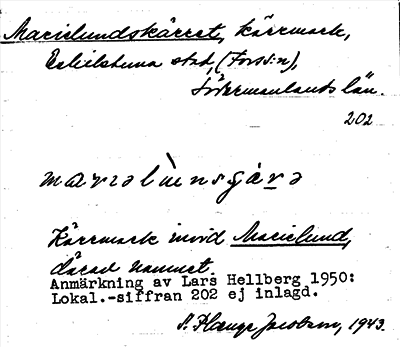 Marielundskärret, kärrmark,
Eskilstuna stad, (Forss:n),
Södermanlands län.
202
Kärrmark invid Marielund,
därav namnet.
Anmärkning av Lars Hellberg 1950:
Lokal.-siffran 202 ej inlagd.
Jacobson, 1943.